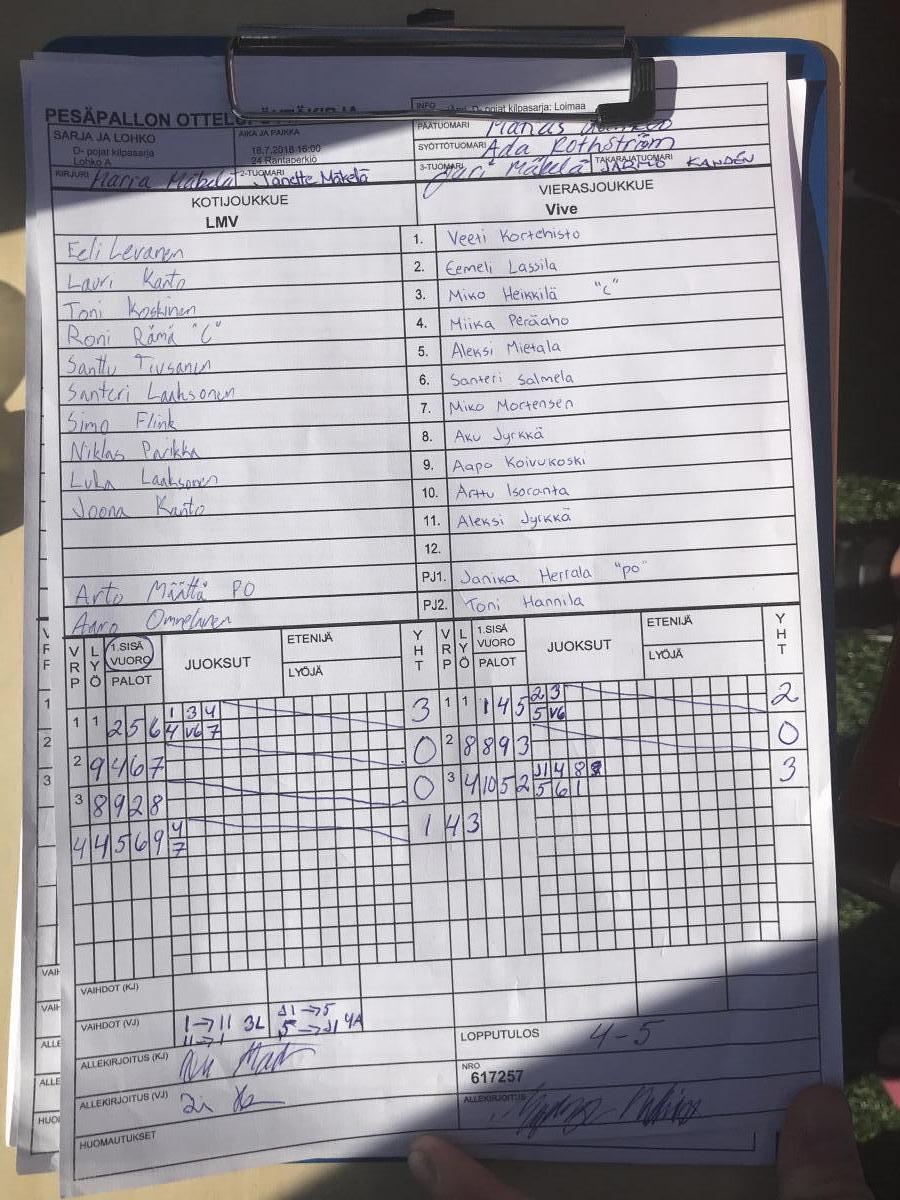 PESÄPALLON
INFO
D- pojat kilpasarja: Loimaa
SARJA JA LOHKO
D- pojat kilpasarja
Lohko A
AIKA JA PAIKKA
18.7.2018 16:00
24 Rantaperkiö
PÄÄTUOMARI
SYÖTTÖTUOMARI Ada Rothström
KIRJURI Mäkelä 2-TUOMARI Janette Mäkelä
3-TUOMARI Jari Mäkelä TAKARAJATUOMARI JARMO KANDÉN
KOTIJOUKKUE
LMV
VIERASJOUKKUE
Vive
Eeli Levanen 1. Veeti Kortehisto
Lauri Kanto 2. Eemeli Lassila
Toni Koskinen 3. Miko Heikkilä "C"
Roni Rämä "C" 4. Miika Peräaho
Santtu 5. Aleksi Mietala
Santeri Laaksonen 6. Santeri Salmela
Simo Flink 7. Miko Mortensen
Niklas Parikka 8. Aku Jyrkkä
Luka Laaksonen 9. Aapo Koivukoski
Joona Kanto 10. Arttu Isoranta
11. Aleksi Jyrkkä
12.
Arto Määttä PO PJ1. Janika Herrala "po"
Aaro PJ2. Toni Hannila
VRP LYÖ 1.SISÄ VUORO PALOT JUOKSUT ETENIJÄ LYÖJÄ YHT VRP LYÖ 1.SISÄ VUORO PALOT JUOKSUT ETENIJÄ LYÖJÄ YHT
1 1 2 5 6 1 3 4 3 1 1 1 4 5 2 3 2
4 V6 7 5 V6
2 9 4 6 7 0 2 8 8 9 3 0
3 8 9 2 8 0 3 4 10 5 2 J1 4 8 3
5 6 1
4 4 5 6 9 4 1 4 3
7
VAIHDOT (KJ)
VAIHDOT (VJ) 1→11 3L J1→5
11→1 5→J1 4A
ALLEKIRJOITUS (KJ)
LOPPUTULOS 4-5
ALLEKIRJOITUS (VJ)
NRO
617257
ALLEKIRJOITUS
HUOMAUTUKSET